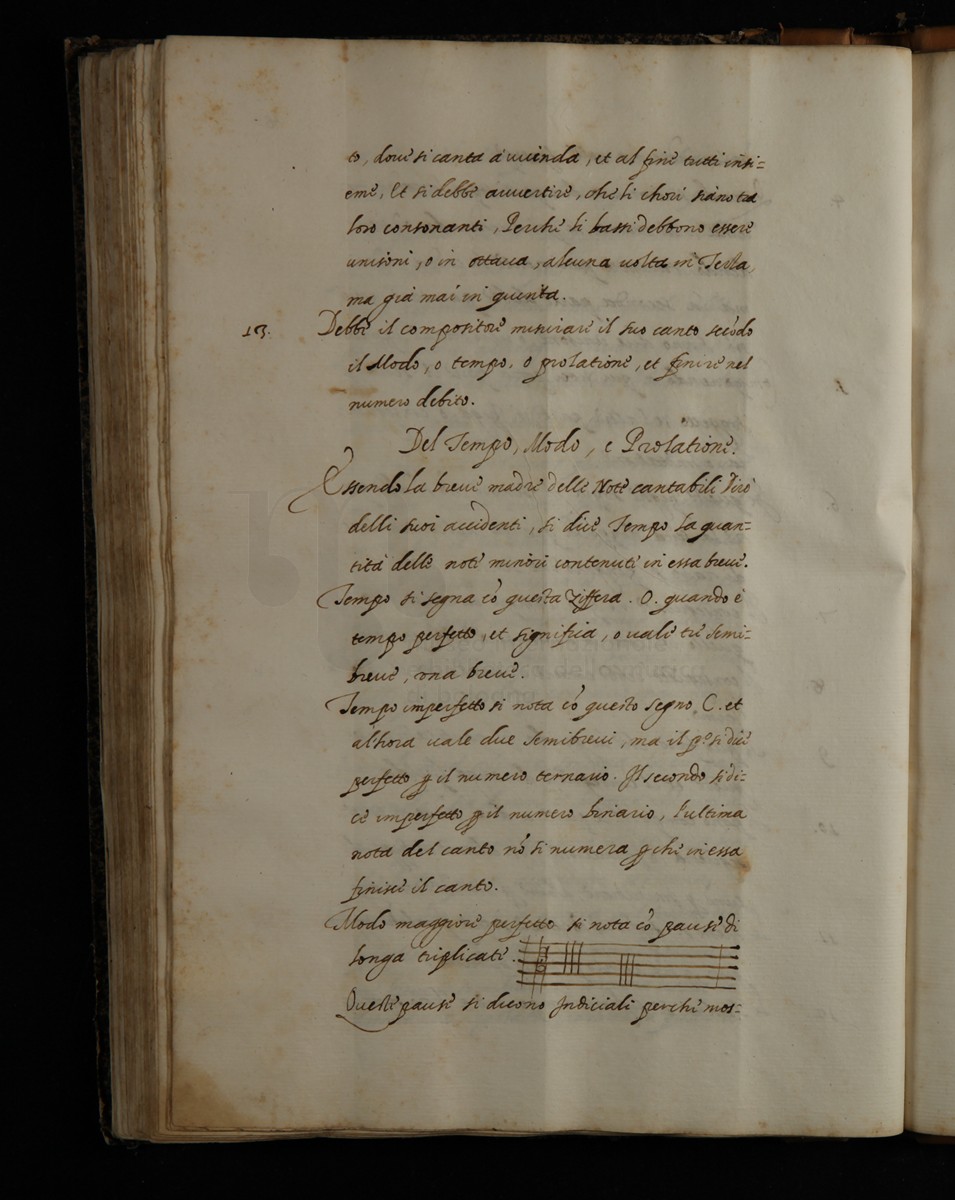 to, doue si canta à uicenda, et al fine tutti insi=
eme, Et si debbe auuertire, che li chori siano tra
loro consonanti, Perche li bassi debbono essere
unisoni, o in ottaua, alcuna uolta in Terza,
ma già mai in quinta.
13. Debbe il compositore misurare il suo canto secōdo
il Modo, o tempo, o prolatione, et finire nel
numero debito.
Del Tempo, Modo, e Prolatione.
Essendo la breue madre delle Note cantabili
delli suoi accidenti, si dice Tempo la quan=
tità delle note minori contenuti in essa breue.
Tempo si segna cō questa Ziffera. O. quando è
tempo perfetto, et significa, o uale tre semi=
breue, una breue.
Tempo imperfetto si nota cō questo segno C. et
alhora uale due semibreui, ma il p.º si dice
perfetto ꝑ il numero ternario. Il secondo si di=
ce imperfetto ꝑ il numero binario, l'ultima
nota del canto nō si numera ꝑche in essa
finisce il canto.
Modo maggiore perfetto si nota cō pause di
longa triplicate.
Queste pause si dicono Indiciali perche mos=